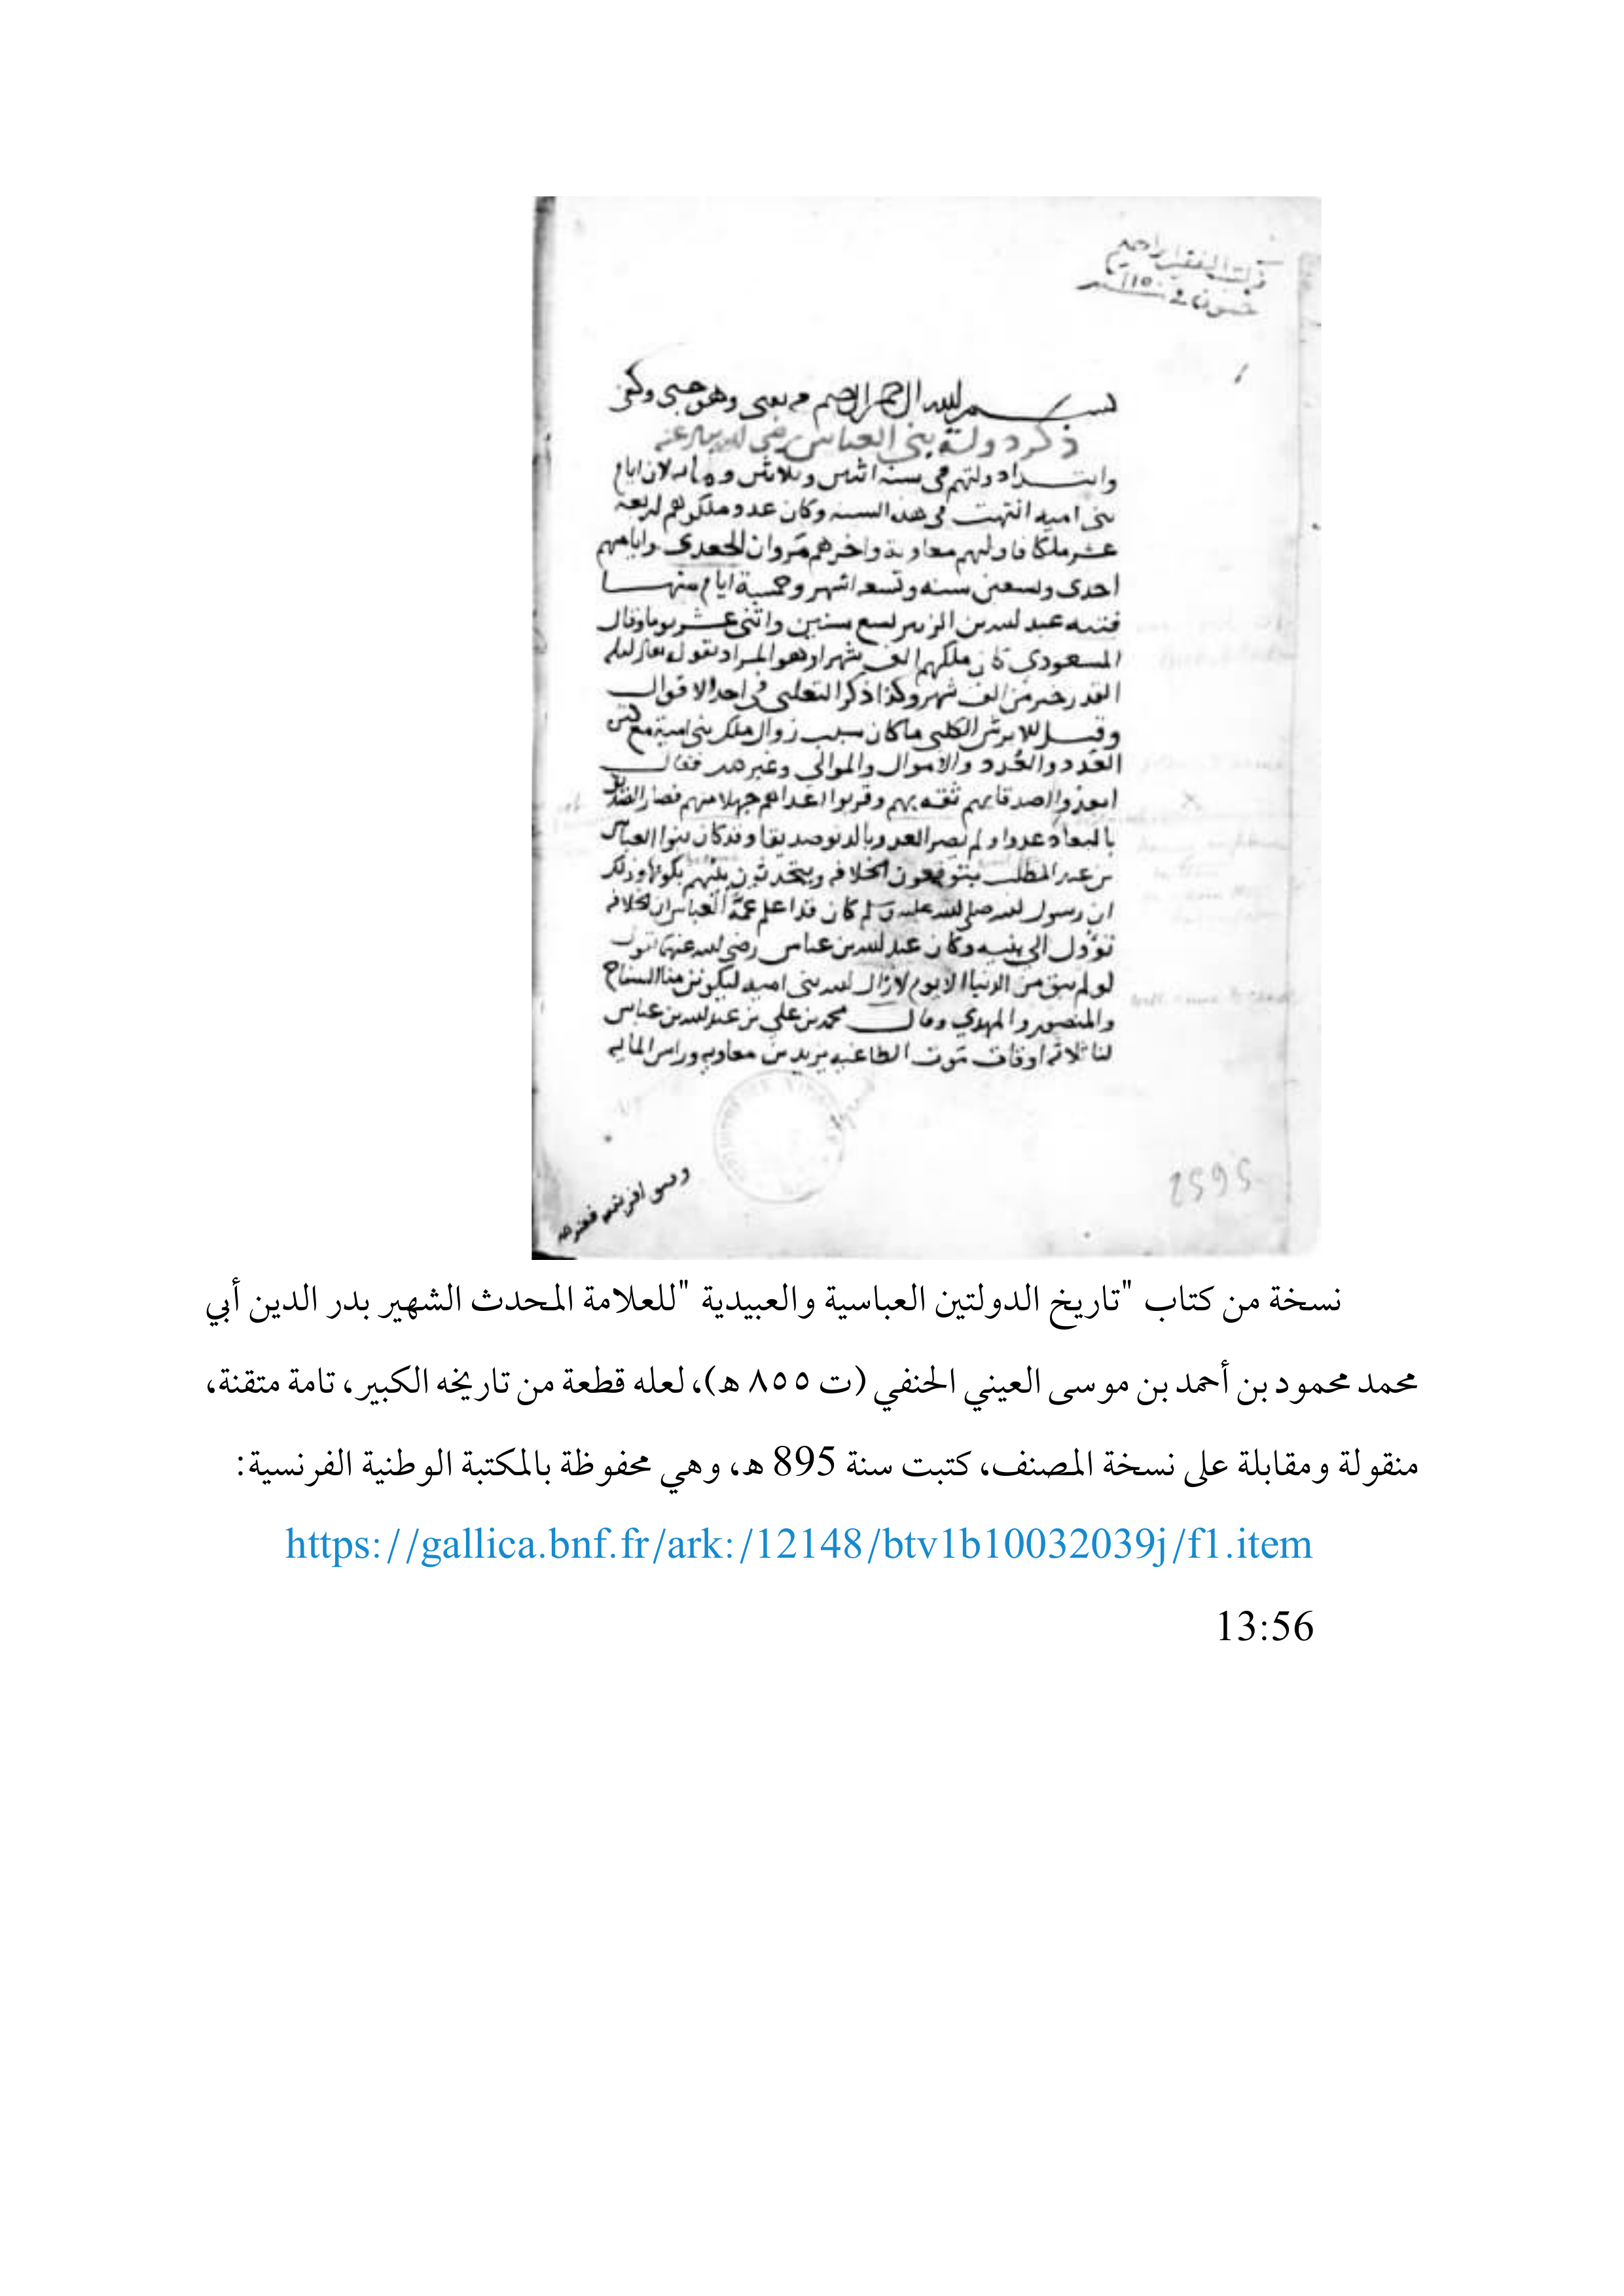 بسم الله الرحمن الرحيم وهو حسبي وكفى
ذكر دولة بني العباس رضي الله عنه
وابتداء دولتهم في سنة اثنين وثلاثين ومايه لان ايام
بني اميه انتهت في هذه السنه وكان عدد ملكوهم اربعة
عشر ملكا فاولهم معاوية واخرهم مروان الجعدي وايامهم
احدى وتسعين سنه وتسعه اشهر وخمسة ايام منها
فتنه عبد الله بن الزبير تسع سنين واثنى عشر يوما وقال
المسعودي كان ملكهم الف شهر وهو المراد بقوله تعالى ليله
القدر خير من الف شهر وكذا ذكر الثعلبي في احد الاقوال
وقيل للابرش الكلبي ما كان سبب زوال ملك بني امية مع كثرة
العدد والعُدد والاموال والموالي وغيرهم فقال
ابعدوا اصدقايهم ثقه بهم وقربوا اعداهم جهلا منهم فصار الصديق
بالبعاد عدوا ولم يصر العدو بالدنو صديقا وقد كان بنوا العباس
بن عبد المطلب يتوقعون الخلافه ويتحدثون بينهم بكونها وذلك
ان رسول الله صلى الله عليه وسلم كان قد اعلم عمه العباس ان الخلافه
تؤول الى بنيه وكان عبد الله بن عباس رضي الله عنهما يقول
لو لم يبق من الدنيا الا يوم لازال الله بني اميه ليكونن منا السفاح
والمنصور والمهدي وقال محمد بن علي بن عبد الله بن عباس
لنا ثلاثه اوقات موت الطاغيه يزيد بن معاويه وراس المايه
وفتق افريقيه
2595
نسخة من كتاب "تاريخ الدولتين العباسية والعبيدية "للعلامة المحدث الشهير بدر الدين أبي
محمد محمود بن أحمد بن موسى العيني الحنفي (ت ٨٥٥ هـ)، لعله قطعة من تاريخه الكبير، تامة متقنة،
منقولة ومقابلة على نسخة المصنف، كتبت سنة 895 هـ، وهي محفوظة بالمكتبة الوطنية الفرنسية:
https://gallica.bnf.fr/ark:/12148/btv1b10032039j/f1.item
13:56